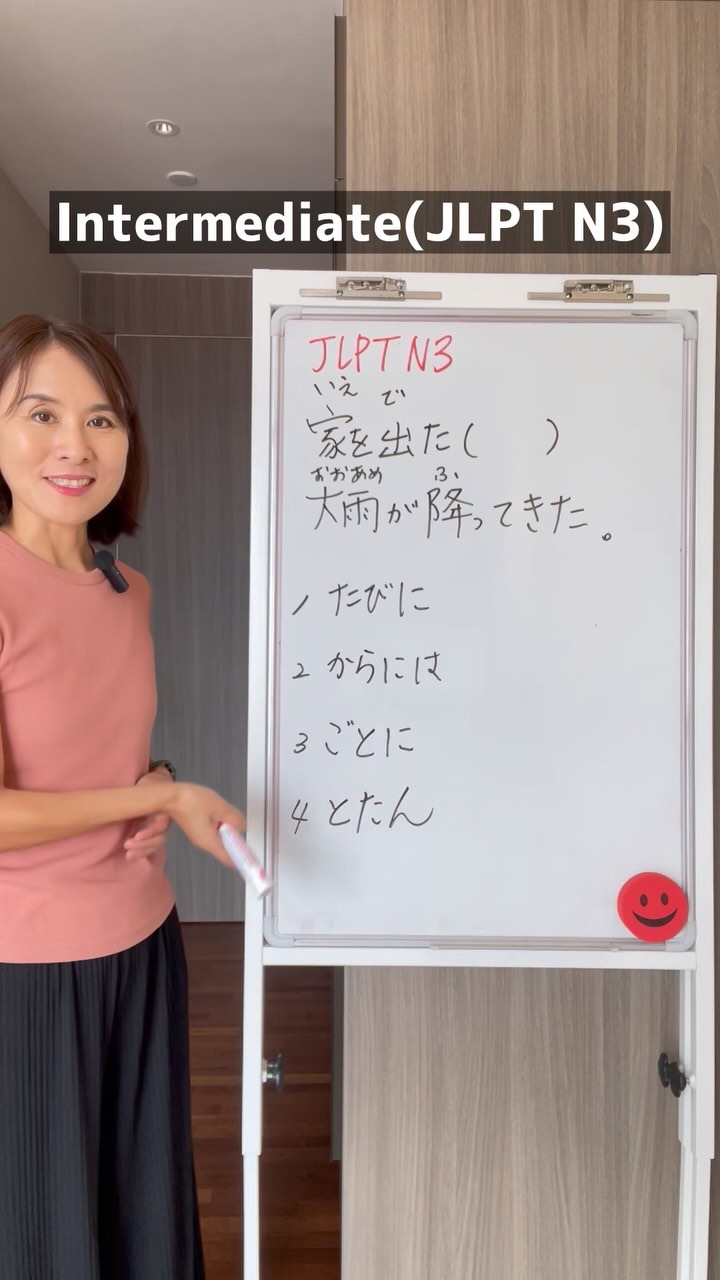 Intermediate(JLPT N3)
JLPT N3
いえ で
家を出た( )
おおあめ ふ
大雨が降ってきた。
1 たびに
2 からには
3 ごとに
4 とたん